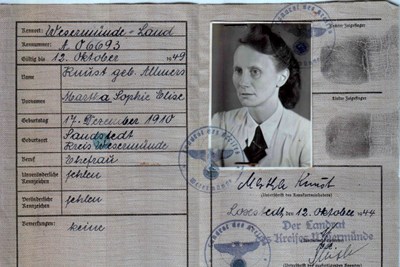 Kennort: Wesermünde-Land
Kennummer: A 06693
Gültig bis 12. Oktober 1949
Name Knust geb. Allmers
Vornamen Martha Sophie Elise
Geburtstag 17. Dezember 1910
Geburtsort Sandstedt
Kreis Wesermünde
Beruf Ehefrau
Unveränderliche Kennzeichen fehlen
Veränderliche Kennzeichen fehlen
Bemerkungen: keine
Rechter Zeigefinger
Linker Zeigefinger
Martha Knust
(Unterschrift des Kennkarteninhabers)
Loxstedt, den 12. Oktober 1944
Der Landrat
des Kreises Wesermünde